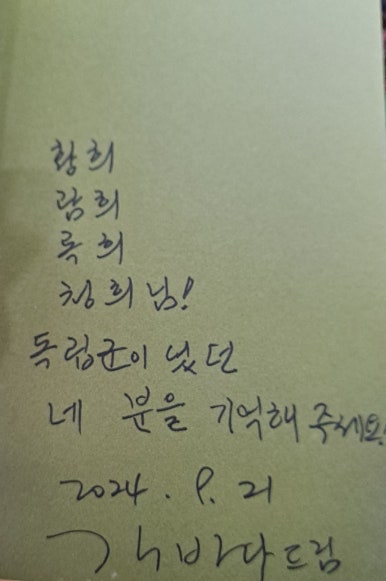 황희
광희
록희
청희님!
독립군이 었던
네 분을 기억해 주세요!
2024. 9. 21
드림